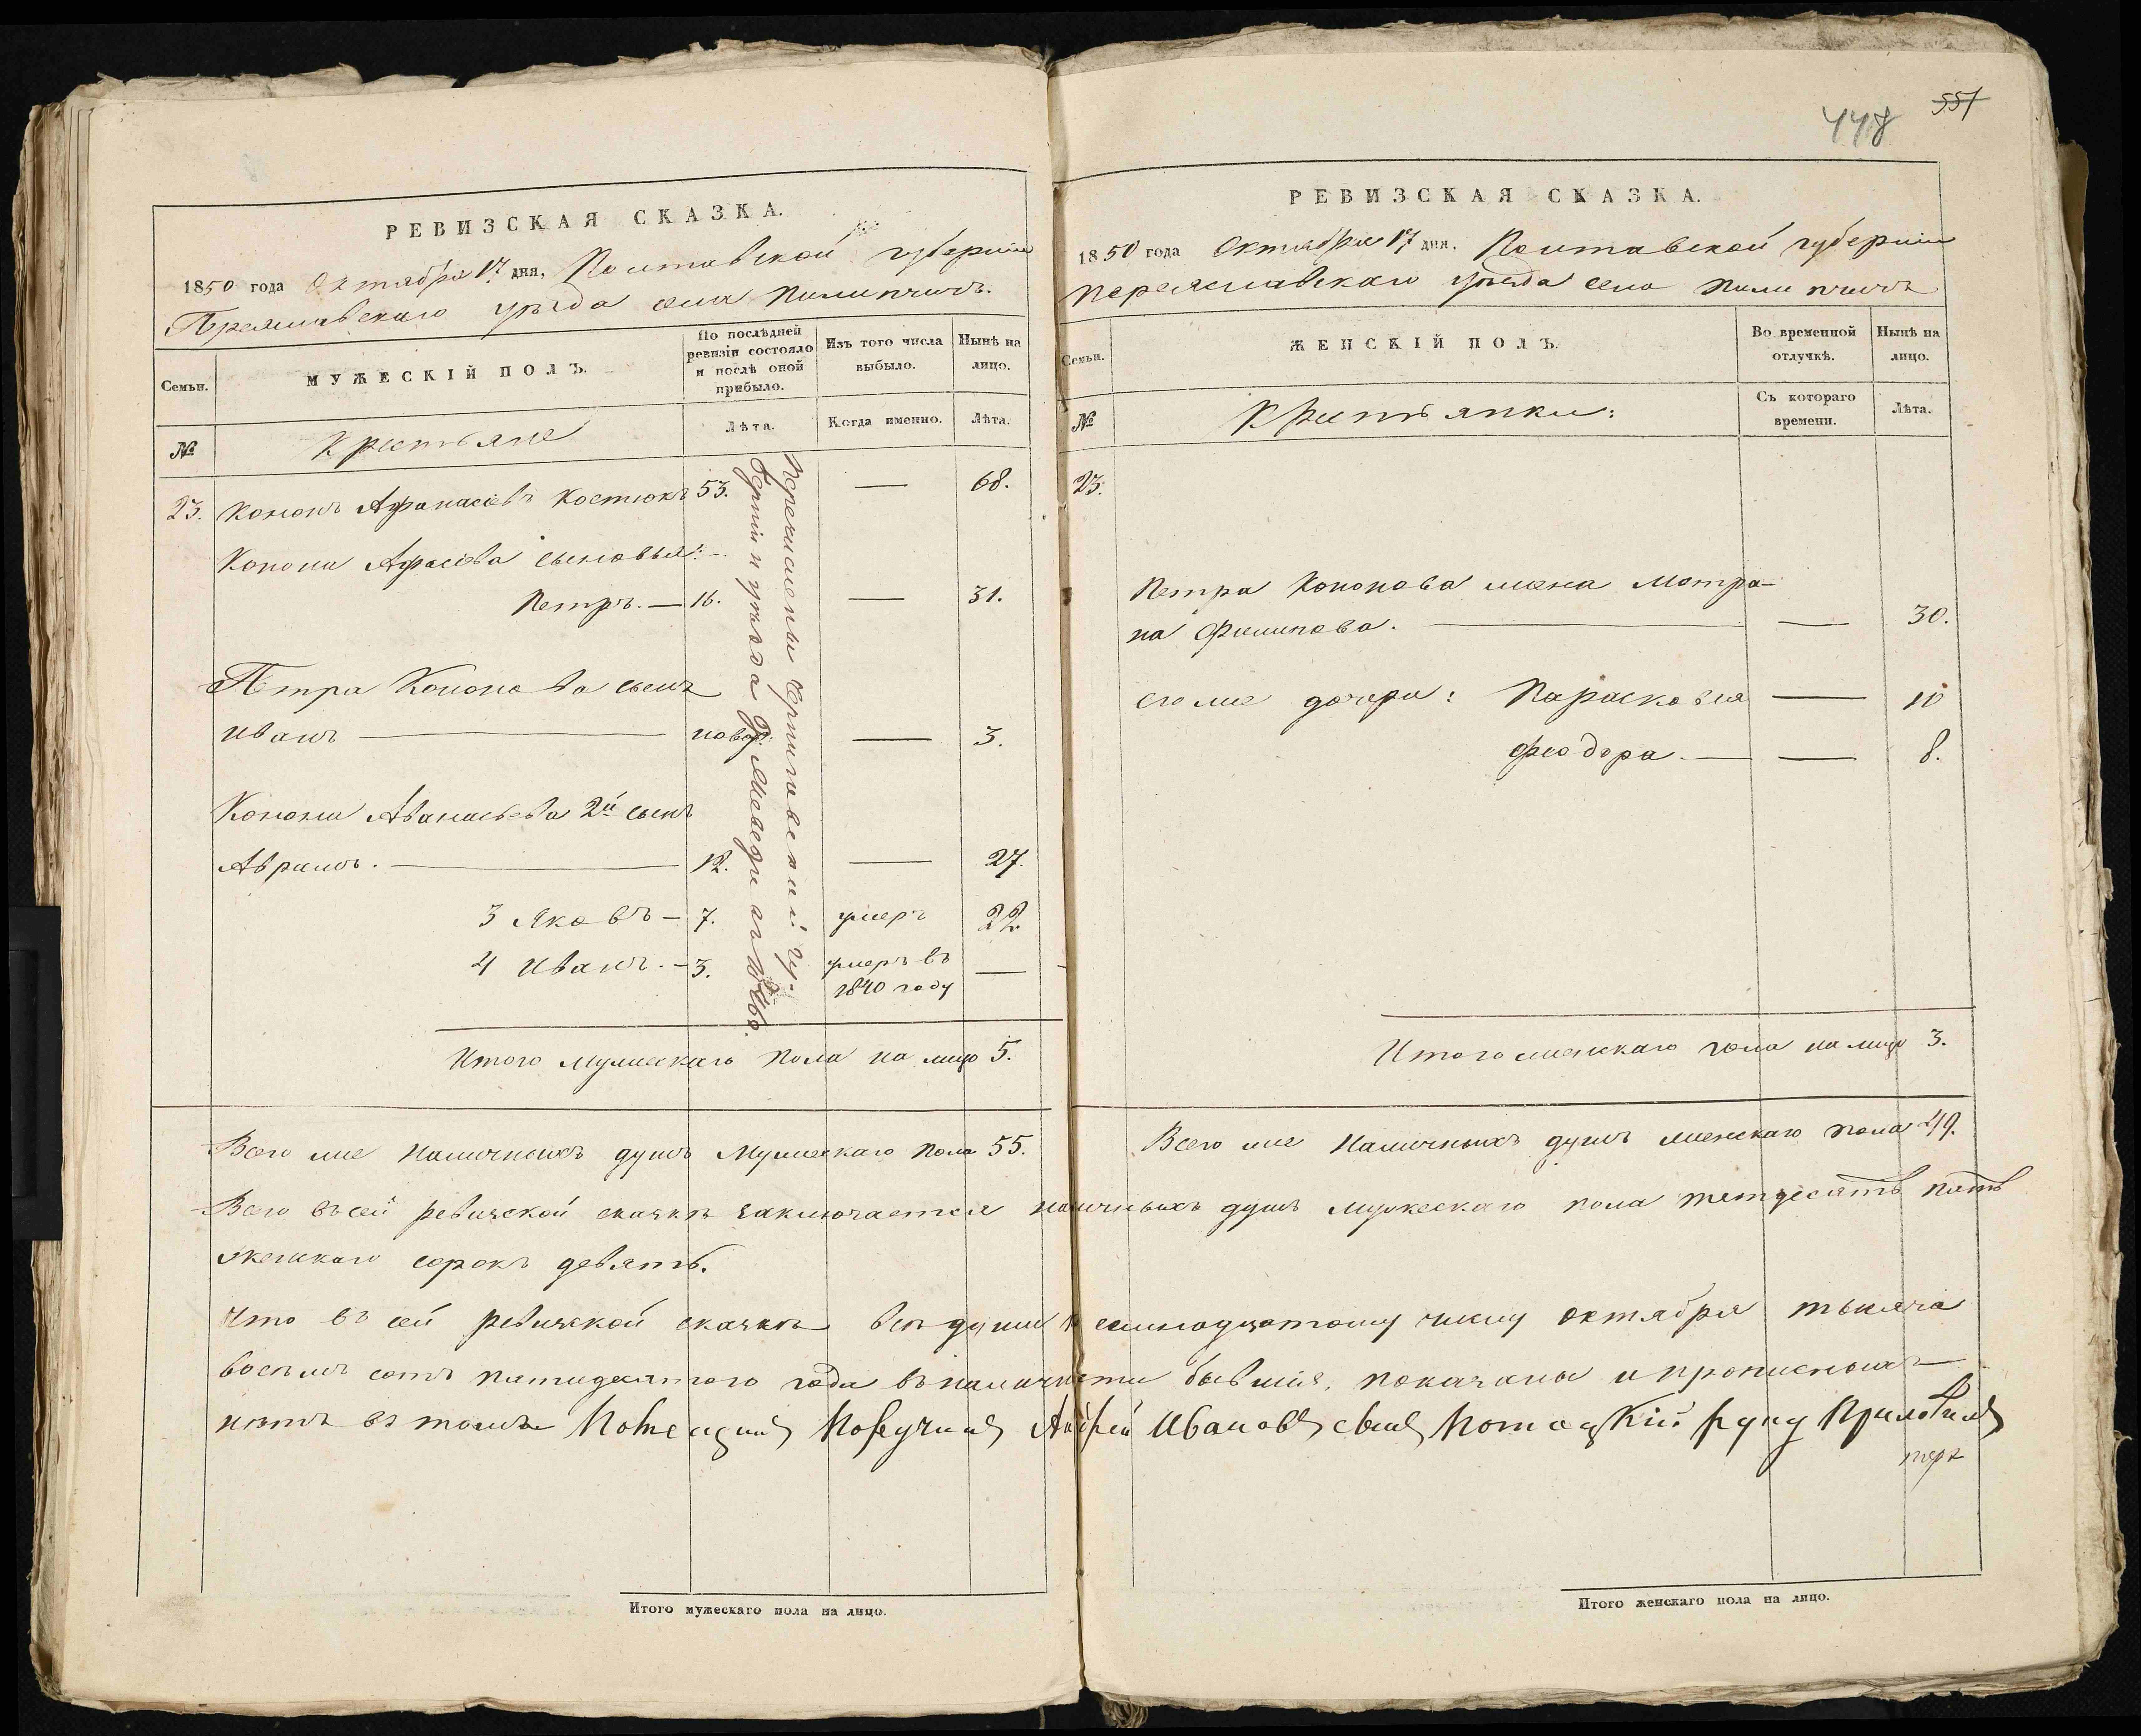 РЕВИЗСКАЯ СКАЗКА.
1850 года Октября 17 дня, Полтавской губерніи
Переяславскаго уѣзда села Пилипчичъ.
Семьи.
МУЖЕСКІЙ ПОЛЪ.
По послѣдней ревизіи состояло и послѣ оной прибыло.
Изъ того числа выбыло.
Нынѣ на лицо.
№
Крестьяне
Лѣта.
Когда именно.
Лѣта.
23. Кононъ Афанасіевъ Костюкъ 53. — 68.
Конона Афасіева сыновья:
Петръ. — 16. — 31.
Петра Кононова сынъ
Иванъ — новор: — 3.
Конона Аванасьева 2й сынъ
Аврамъ. — 12. — 27.
3 Яковъ — 7. умеръ 22
4 Иванъ. — 3. умеръ въ —
1840 году
Перечислены Черниговской гу-
берніи и уѣзда
Итого мужескаго пола на лицо 5.
Всего же наличныхъ душъ мужескаго пола 55.
448
551
РЕВИЗСКАЯ СКАЗКА.
1850 года Октября 17 дня, Полтавской губерніи
Переяславскаго уѣзда села Пилипчичъ
Семьи.
ЖЕНСКІЙ ПОЛЪ.
Во временной отлучкѣ.
Нынѣ на лицо.
№
Крестьянки:
Съ котораго времени.
Лѣта.
23.
Петра Кононова жена Мотро-
на Филипова. — 30.
его же дочери: Парасковья — 10
Феодора. — 8.
Итого женскаго пола на лицо 3.
Всего же наличныхъ душъ женскаго пола 49.
Всего въ сей ревизской сказкѣ заключается наличныхъ душъ мужескаго пола петдесятъ пять
женскаго сорокъ девять.
Что въ сей ревизской сказкѣ всѣ души к семнадцатому числу октября тысяча
восемъ сотъ пятидесятого года въ наличности бывшія, показаны и прописныхъ
нѣтъ въ томъ Помещикъ Поручикъ Андрей Ивановъ сынъ Потоцкій руку Приложилъ
Итого мужескаго пола на лицо.
Итого женскаго пола на лицо.